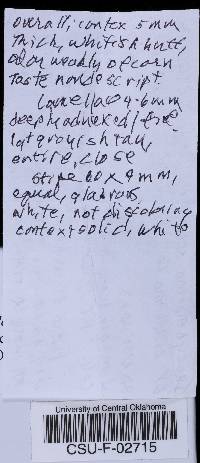 overall, context 5 mm
thick, whitish buff,
odor weakly of corn
taste nondescript.
Lamellae 4-6 mm
deep, adnexed / free
lat grayish tan,
entire, close
Stipe 60 x 9 mm,
equal, glabrous,
white, not discoloring
context solid, white
University of Central Oklahoma
CSU-F-02715